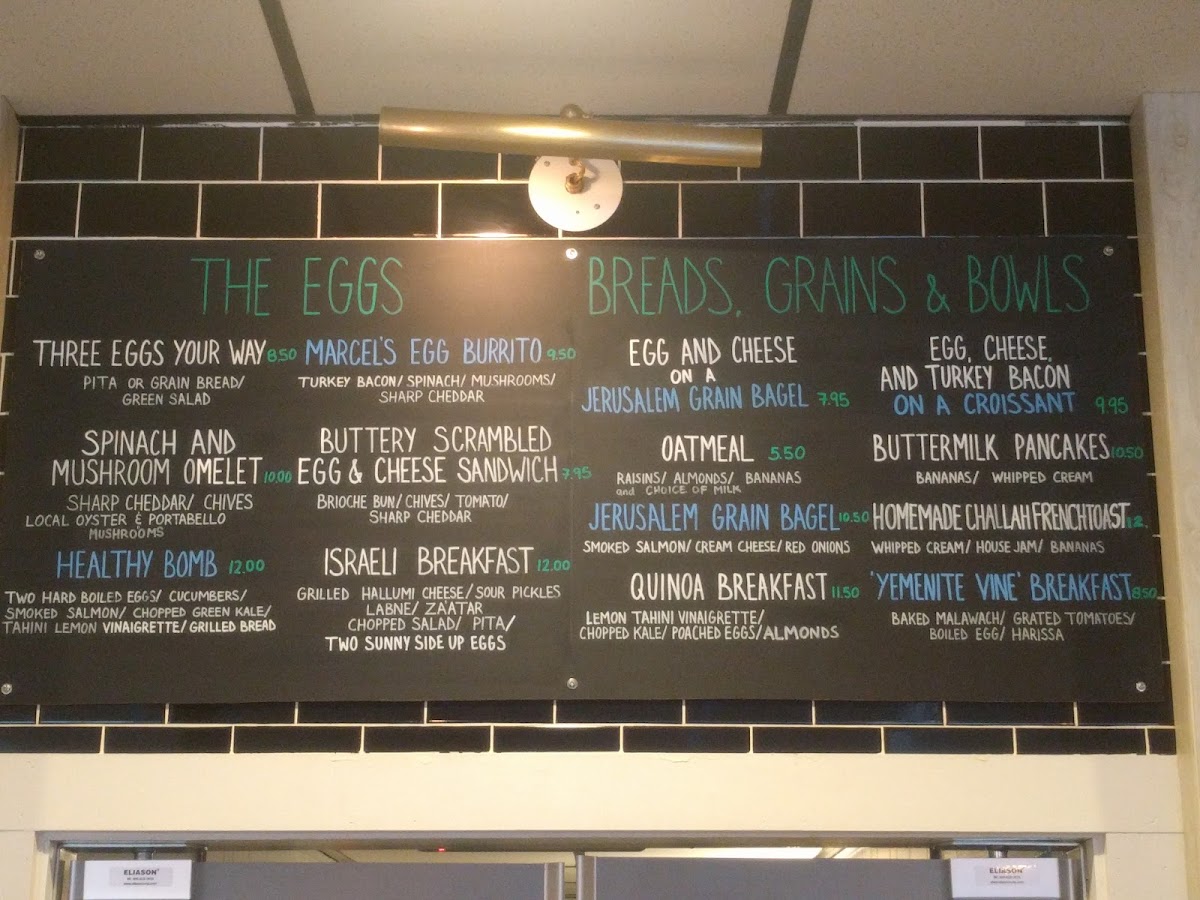 THE EGGS
THREE EGGS YOUR WAY 8.50
PITA OR GRAIN BREAD/
GREEN SALAD
SPINACH AND
MUSHROOM OMELET 10.00
SHARP CHEDDAR/ CHIVES
LOCAL OYSTER & PORTABELLO
MUSHROOMS
HEALTHY BOMB 12.00
TWO HARD BOILED EGGS/ CUCUMBERS/
SMOKED SALMON/ CHOPPED GREEN KALE/
TAHINI LEMON VINAIGRETTE/ GRILLED BREAD
MARCEL'S EGG BURRITO 9.50
TURKEY BACON/ SPINACH/ MUSHROOMS/
SHARP CHEDDAR
BUTTERY SCRAMBLED
EGG & CHEESE SANDWICH 7.95
BRIOCHE BUN/ CHIVES/ TOMATO/
SHARP CHEDDAR
ISRAELI BREAKFAST 12.00
GRILLED HALLUMI CHEESE/ SOUR PICKLES
LABNE/ ZA'ATAR
CHOPPED SALAD/ PITA/
TWO SUNNY SIDE UP EGGS
BREADS, GRAINS & BOWLS
EGG AND CHEESE
ON A
JERUSALEM GRAIN BAGEL 7.95
OATMEAL 5.50
RAISINS/ ALMONDS/ BANANAS
and CHOICE OF MILK
JERUSALEM GRAIN BAGEL 10.50
SMOKED SALMON/ CREAM CHEESE/ RED ONIONS
QUINOA BREAKFAST 11.50
LEMON TAHINI VINAIGRETTE/
CHOPPED KALE/ POACHED EGGS/ ALMONDS
EGG, CHEESE,
AND TURKEY BACON
ON A CROISSANT 9.95
BUTTERMILK PANCAKES 10.50
BANANAS/ WHIPPED CREAM
HOMEMADE CHALLAH FRENCH TOAST 12.
WHIPPED CREAM/ HOUSE JAM/ BANANAS
'YEMENITE VINE' BREAKFAST 8.50
BAKED MALAWACH/ GRATED TOMATOES/
BOILED EGG/ HARISSA
ELIASON
ELIASON